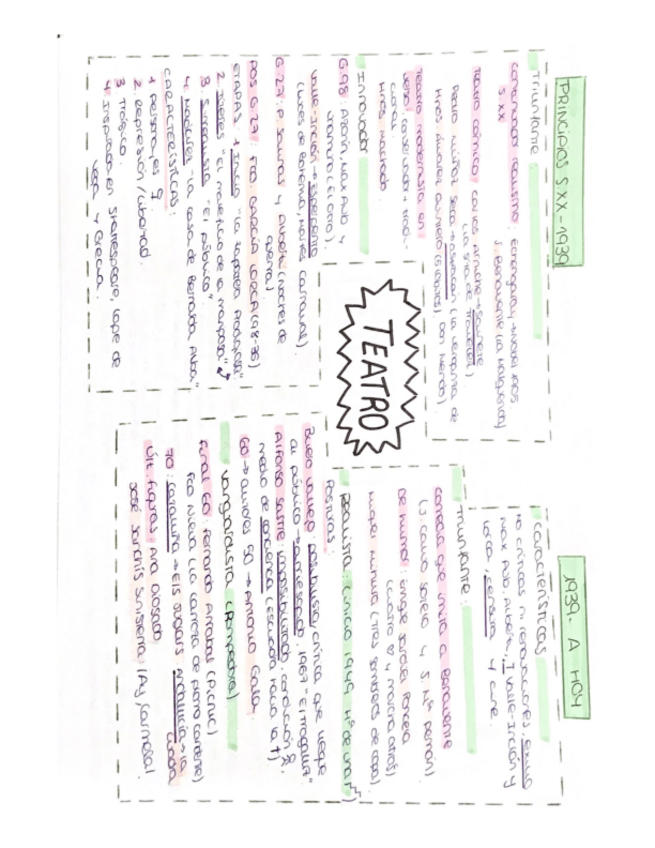 PRINCIPIOS S.XX - 1939
TRIUNFANTE:
continuador realismo: Echegaray → Nobel 1905
S.XX J. Benavente (La Malquerida)
Teatro cómico: Carlos Arniches → sainete
(La srta de Trevélez)
Pedro Muñoz Seca → astracán (La venganza de
Hnos Álvarez Quintero Don Mendo)
Teatro modernista en
verso: conservador + tradi-
cional
Hnos Machado.
Innovador
G.98: Azorín, Max Aub y
Unamuno (El otro).
Valle-Inclán → Esperpento
(Luces de Bohemia, Martes Carnaval).
G.27: P. Salinas y Alberti (Noches de
guerra)
POS G.27: Fco. GARCÍA LORCA (98-36)
ETAPAS: 1 Inicio "La zapatera prodigiosa"
2 "El maleficio de la mariposa"
3. Surrealista "El público"
4. Madurez "La casa de Bernarda Alba"
CARACTERÍSTICAS:
1 Personajes ♀
2 Represión/libertad.
3 Trágico.
4 Inspirada en Shakespeare, Lope de
Vega y Grecia.
TEATRO
1939 - A HOY
CARACTERÍSTICAS
no críticas ni renovaciones, exilio
Max Aub, Alberti, I Valle-Inclán y
Lorca, censura y cine.
TRIUNFANTE:
comedia que imita a Benavente
(J. Calvo Sotelo y J. Mª Pemán)
DE HUMOR: Enrique Jardiel Poncela
(Cuatro y marcha atrás)
Miguel Mihura (Tres sombreros de copa)
REALISTA: (inicio 1949 Hª de una
POSTURAS:
Buero Vallejo: posibilista, crítica que llegue
al público → arriesgado. 1967 "El tragaluz"
Alfonso Sastre: imposibilitado, condición
medio de conciencia (Escuadra hacia la †)
60 → autores 50 → Antonio Gala.
Vanguardista (Rompedora)
Final 60: Fernando Arrabal (Picnic)
Fco Nieva (La carroza de plomo candente)
70: Cataluña → Els Joglars Andalucía → La
Cuadra
Últ. figuras: Ana Diosdado
José Sanchis Sinisterra (¡Ay, Carmela!